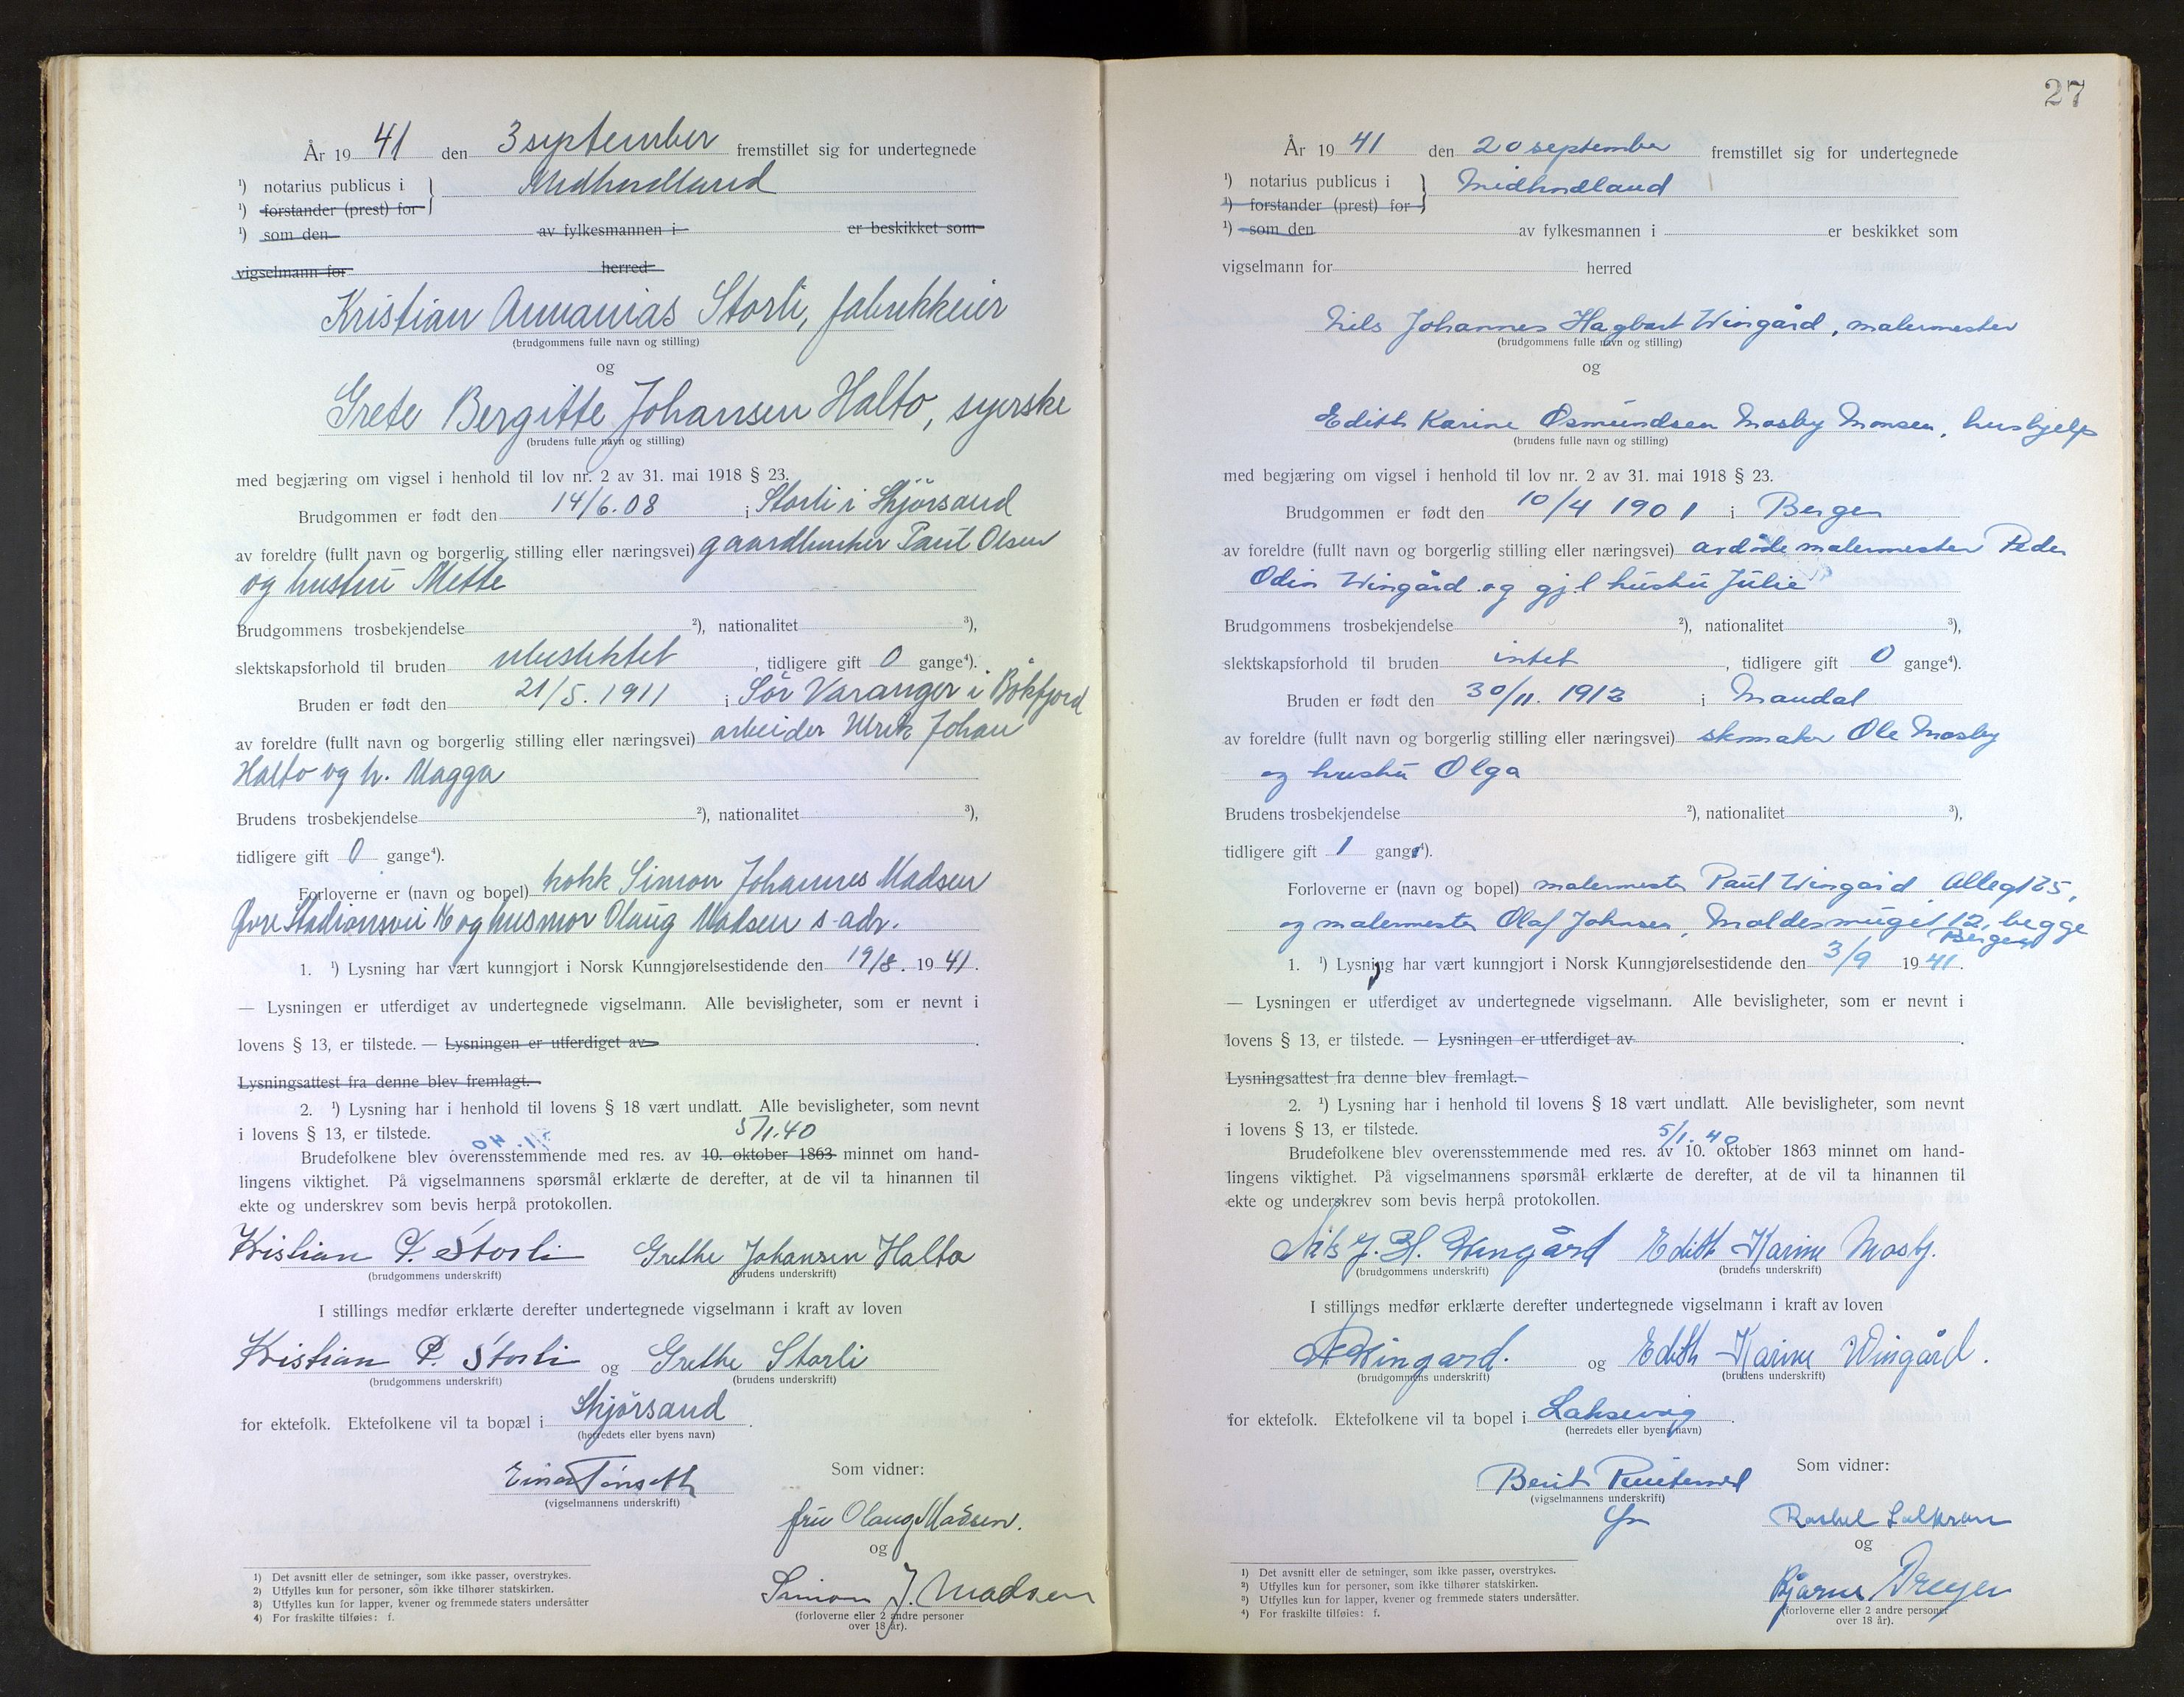 År 19 41 den 3 september fremstillet sig for undertegnede
¹) notarius publicus i } Midhordland
¹) forstander (prest) for
¹) som den av fylkesmannen i er beskikket som
vigselmann for herred
Kristian Annanias Storli, fabrikkeier
(brudgommens fulle navn og stilling)
og
Grete Bergitte Johansen Halto, syerske
(brudens fulle navn og stilling)
med begjæring om vigsel i henhold til lov nr. 2 av 31. mai 1918 § 23.
Brudgommen er født den 14/6.08 i Storli i Skjörsand
av foreldre (fullt navn og borgerlig stilling eller næringsvei) gaardbruker Paul Olsen
og hustru Mette
Brudgommens trosbekjendelse ²), nationalitet ³),
slektskapsforhold til bruden ubeslektet, tidligere gift 0 gange⁴).
Bruden er født den 21/5. 1911 i Sör Varanger i Bökfjord
av foreldre (fullt navn og borgerlig stilling eller næringsvei) arbeider Ulrik Johan
Halto og h. Magga
Brudens trosbekjendelse ²), nationalitet ³),
tidligere gift 0 gange⁴).
Forloverne er (navn og bopel) kokk Simon Johannes Madsen
Övre Stadionsvei 16 og husmor Olaug Madsen s. adr.
1. ¹) Lysning har vært kunngjort i Norsk Kunngjørelsestidende den 19/8. 19 41.
— Lysningen er utferdiget av undertegnede vigselmann. Alle bevisligheter, som er nevnt i
lovens § 13, er tilstede. — Lysningen er utferdiget av
Lysningsattest fra denne blev fremlagt.
2. ¹) Lysning har i henhold til lovens § 18 vært undlatt. Alle bevisligheter, som nevnt
i lovens § 13, er tilstede. 5/1.40
Brudefolkene blev overensstemmende med res. av 10. oktober 1863 minnet om hand-
lingens viktighet. På vigselmannens spørsmål erklærte de derefter, at de vil ta hinannen til
ekte og underskrev som bevis herpå protokollen.
Kristian P. Storli Grethe Johansen Halto
(brudgommens underskrift) (brudens underskrift)
I stillings medfør erklærte derefter undertegnede vigselmann i kraft av loven
Kristian P. Storli og Grethe Storli
(brudgommens underskrift) (brudens underskrift)
for ektefolk. Ektefolkene vil ta bopæl i Skjörsand.
(herredets eller byens navn)
Einar Tönseth
(vigselmannens underskrift)
Som vidner:
fru Olaug Madsen.
og
Simon J. Madsen
(forloverne eller 2 andre personer
over 18 år).
1) Det avsnitt eller de setninger, som ikke passer, overstrykes.
2) Utfylles kun for personer, som ikke tilhører statskirken.
3) Utfylles kun for lapper, kvener og fremmede staters undersåtter
4) For fraskilte tilføies: f.
27
År 19 41 den 20 september fremstillet sig for undertegnede
¹) notarius publicus i } Midhordland
¹) forstander (prest) for
¹) som den av fylkesmannen i er beskikket som
vigselmann for herred
Nils Johannes Hagbart Wingård, malermester
(brudgommens fulle navn og stilling)
og
Edith Karine Osmundsen Mosby Monsen, hushjelp
(brudens fulle navn og stilling)
med begjæring om vigsel i henhold til lov nr. 2 av 31. mai 1918 § 23.
Brudgommen er født den 10/4 1901 i Bergen
av foreldre (fullt navn og borgerlig stilling eller næringsvei) avdöde malermester Peder
Odin Wingård og gjl. hustru Julie
Brudgommens trosbekjendelse ²), nationalitet ³),
slektskapsforhold til bruden intet, tidligere gift 0 gange⁴).
Bruden er født den 30/11. 1912 i Mandal
av foreldre (fullt navn og borgerlig stilling eller næringsvei) skomaker Ole Mosby
og hustru Olga
Brudens trosbekjendelse ²), nationalitet ³),
tidligere gift 1 gange⁴).
Forloverne er (navn og bopel) malermester Paul Wingård, Allegt 25,
og malermester Olaf Johnsen, Moldesmuget 12, begge
Bergen
1. ¹) Lysning har vært kunngjort i Norsk Kunngjørelsestidende den 3/9 19 41.
— Lysningen er utferdiget av undertegnede vigselmann. Alle bevisligheter, som er nevnt i
lovens § 13, er tilstede. — Lysningen er utferdiget av
Lysningsattest fra denne blev fremlagt.
2. ¹) Lysning har i henhold til lovens § 18 vært undlatt. Alle bevisligheter, som nevnt
i lovens § 13, er tilstede. 5/1. 40
Brudefolkene blev overensstemmende med res. av 10. oktober 1863 minnet om hand-
lingens viktighet. På vigselmannens spørsmål erklærte de derefter, at de vil ta hinannen til
ekte og underskrev som bevis herpå protokollen.
Nils J. H. Wingård Edith Karine Mosby.
(brudgommens underskrift) (brudens underskrift)
I stillings medfør erklærte derefter undertegnede vigselmann i kraft av loven
N Wingard. og Edith Karine Wingård.
(brudgommens underskrift) (brudens underskrift)
for ektefolk. Ektefolkene vil ta bopel i Laksevåg.
(herredets eller byens navn)
Berit
(vigselmannens underskrift)
Som vidner:
Rachel
og
Bjarne Dreyer
(forloverne eller 2 andre personer
over 18 år).
¹) Det avsnitt eller de setninger, som ikke passer, overstrykes.
²) Utfylles kun for personer, som ikke tilhører statskirken.
³) Utfylles kun for lapper, kvener og fremmede staters undersåtter.
⁴) For fraskilte tilføies: f.